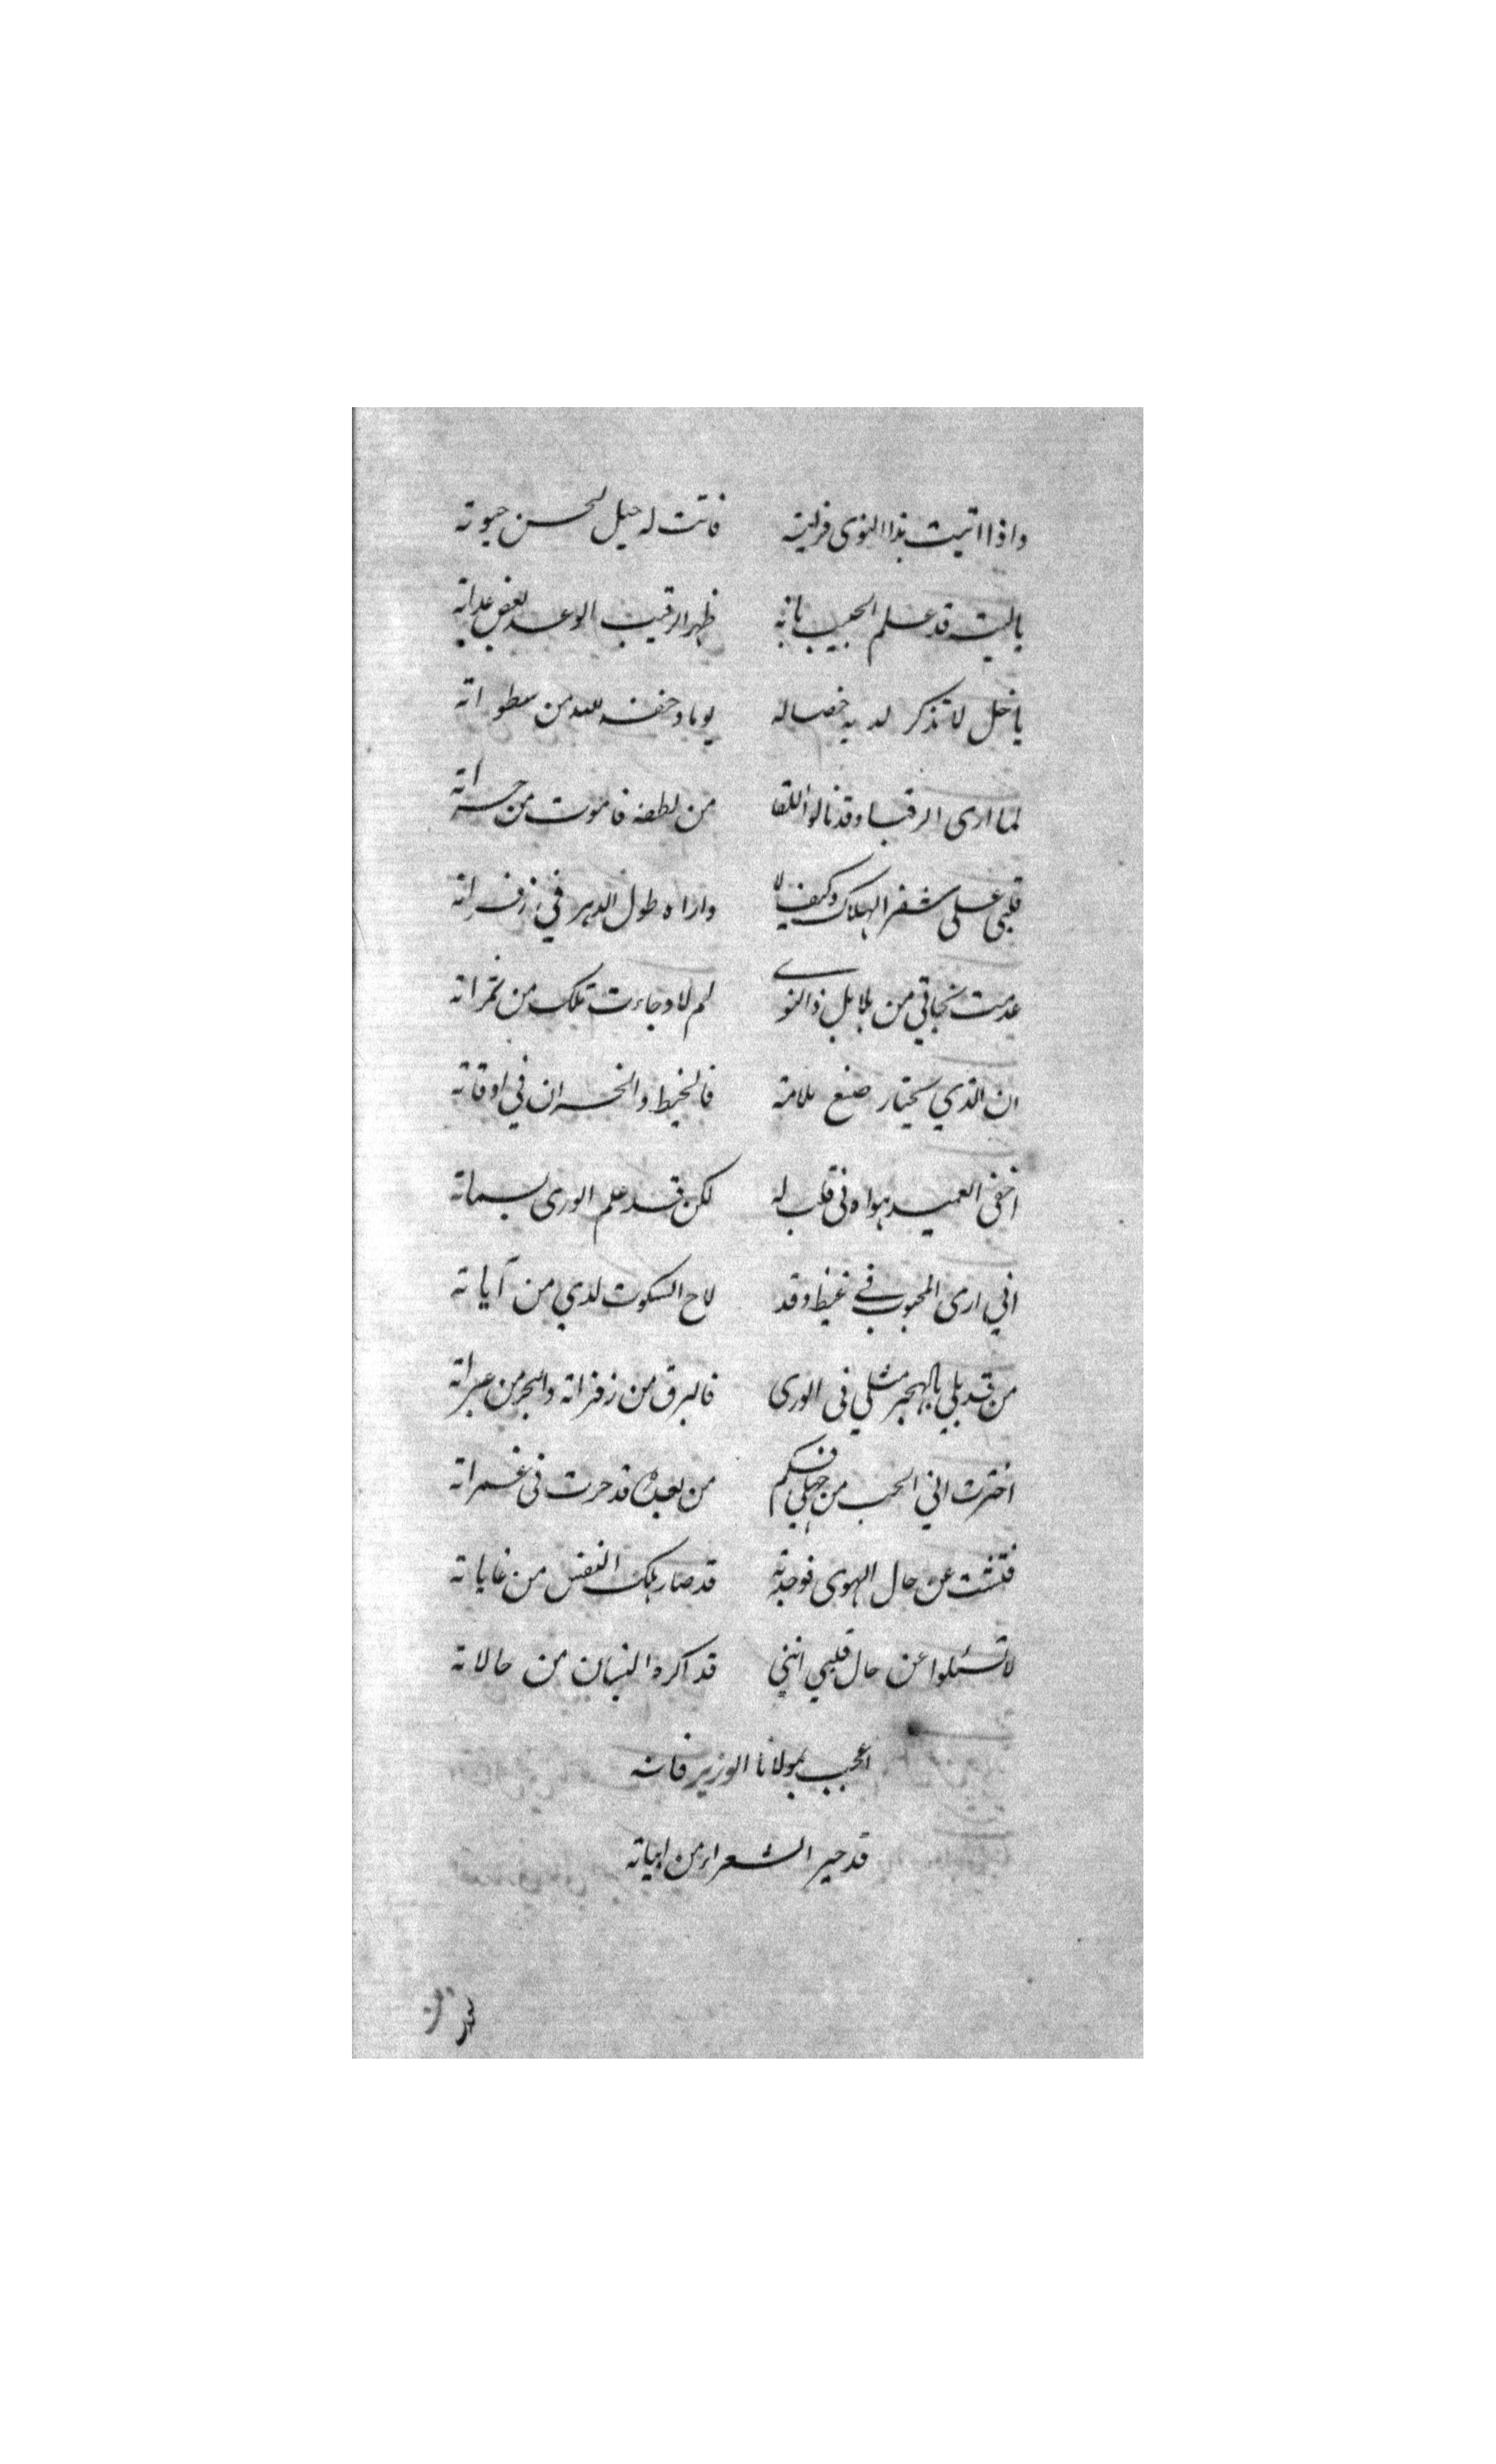 واذا اتيت بذا النوى فرايته فاتت له حيل لحسن حيوته
ياليته قد علم الحبيب بانه ظهر الرقيب الوعد بعض عداته
يا خل لا تذكر لديه خصاله يوما وخف لله من سطواته
لما ارى الرقبا وقد نالوا اللقا من لطفه فاموت من حسراته
قلبي على شفر الهلاك وكيف لا واراه طول الدهر في زفراته
عدمت نجاتي من بلابل ذا النوى لم لا وجاءت تلك من ثمراته
ان الذي يختار صنع ملامة فالخيط والخسران في اوقاته
اخفى العميد هواه فى قلب له لكن قد علم الورى بسماته
اني ارى المحبوب في غيظ وقد لاح السكوت لدي من آياته
من قد بلي بالهجر مثلي فى الورى فالبرق من زفراته والبحر من عبراته
اخترت اني الحب من جهلي فكم من بعده قد حرت فى غمراته
فتشت عن حال الهوى فوجدته قد صار هلك النفس من غاياته
لا تسئلوا عن حال قلبي انني قد اكره التبيان من حالاته
اعجب بمولانا الوزير فانه
قد حير الشعراء من ابياته